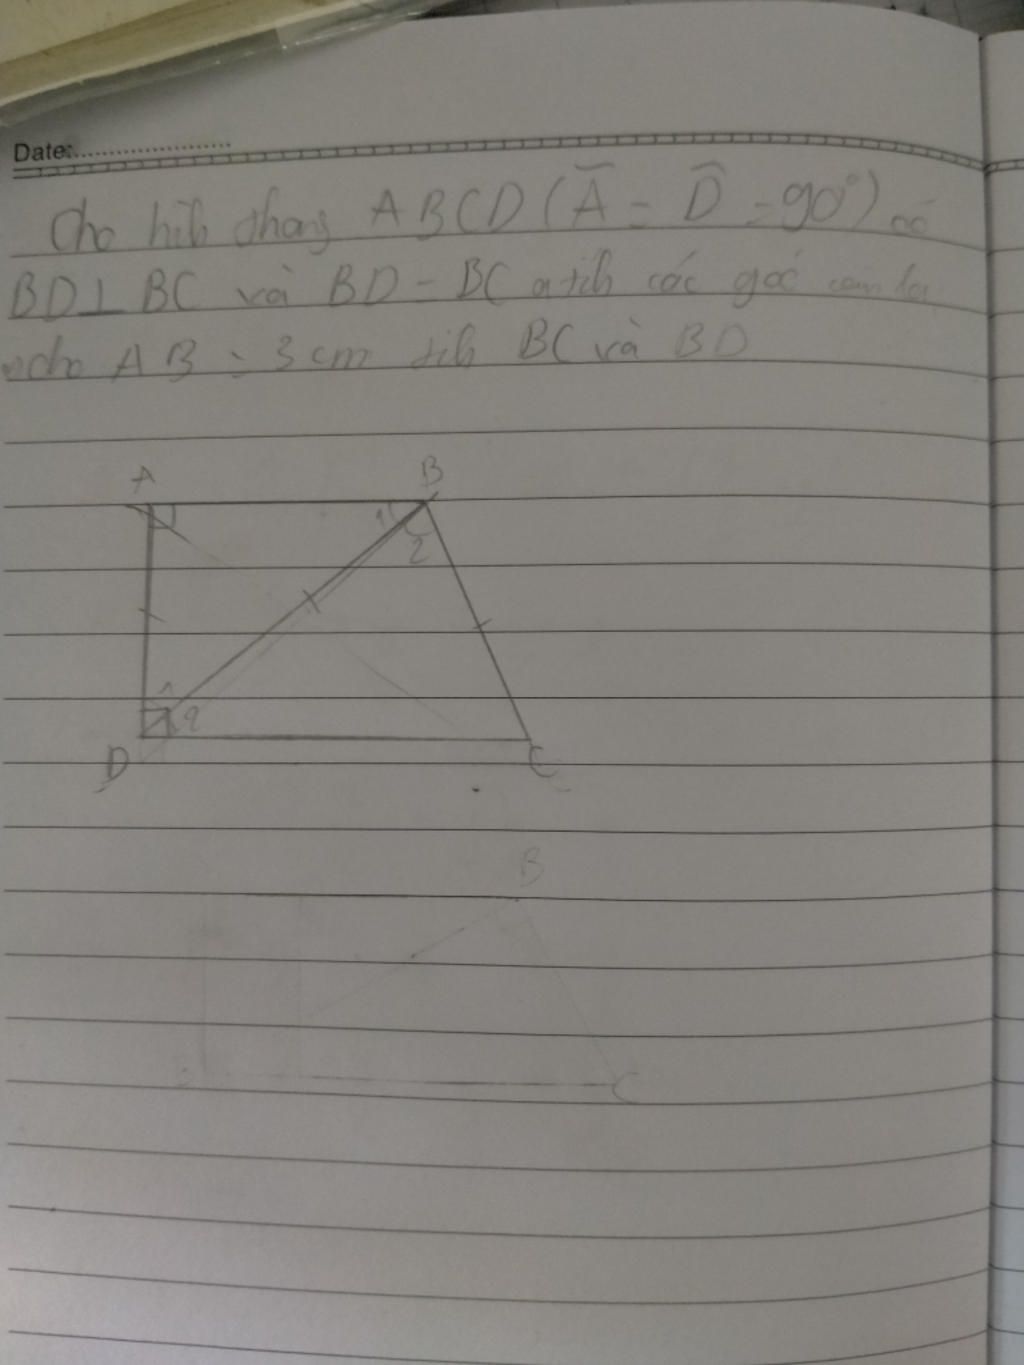 Date:
Cho hìh thang ABCD (Â = D̂ = 90°) có
BD⊥ BC và BD = BC a tíh các góc còn lại
cho AB = 3 cm tíh BC và BD
A B
1
2
1
2
D C
B
C